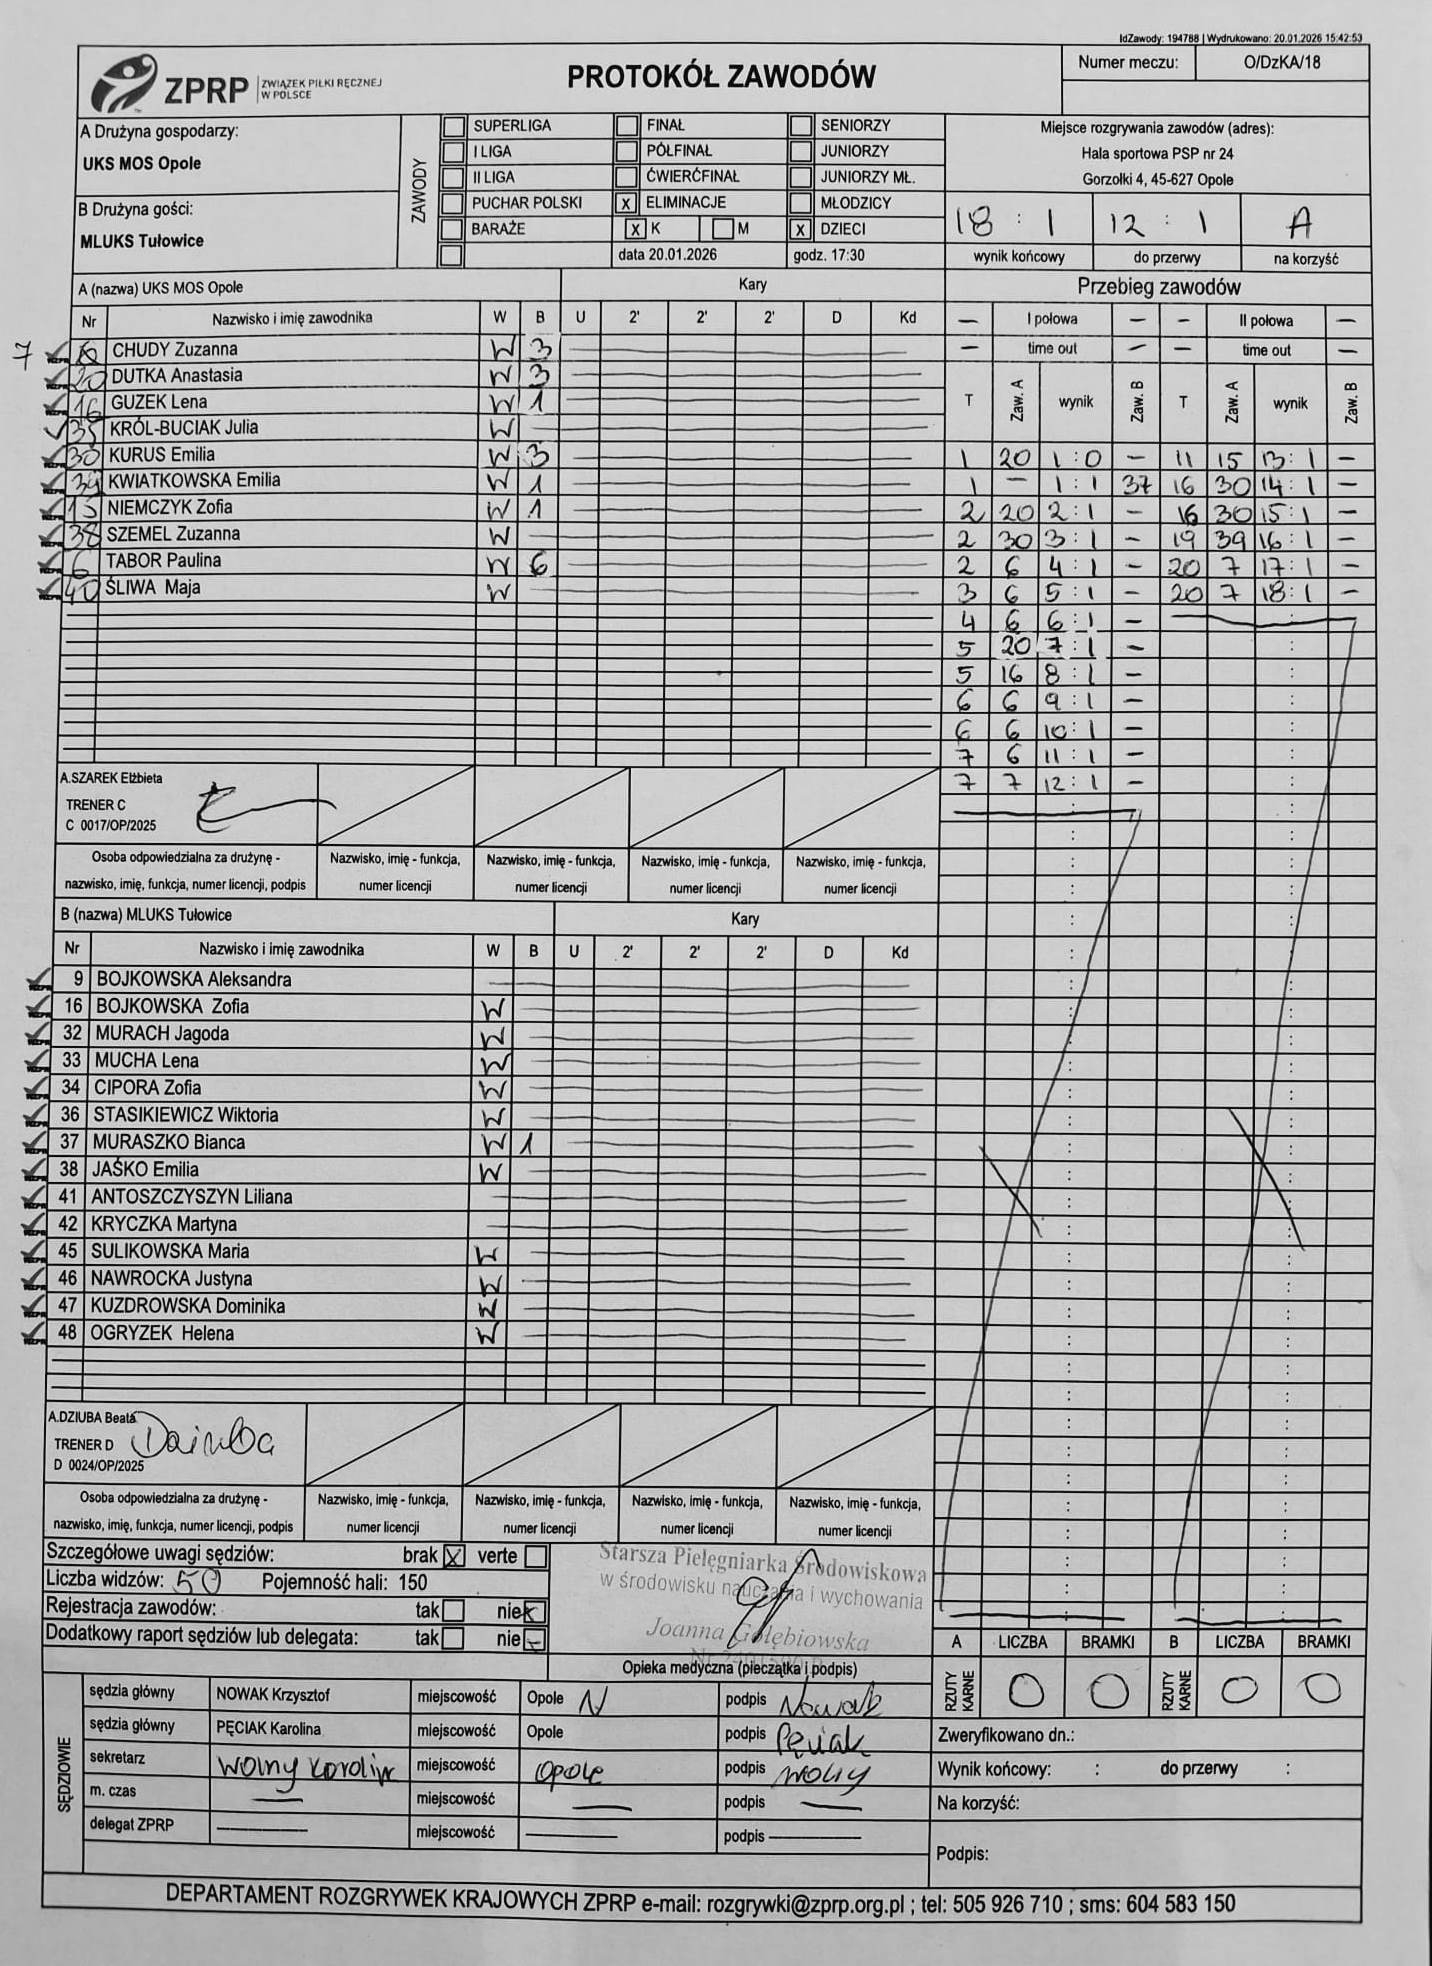 IdZawody: 194788 | Wydrukowano: 20.01.2026 15:42:53
ZPRP ZWIĄZEK PIŁKI RĘCZNEJ W POLSCE
PROTOKÓŁ ZAWODÓW
Numer meczu: O/DzKA/18
A Drużyna gospodarzy:
UKS MOS Opole
B Drużyna gości:
MLUKS Tułowice
ZAWODY
SUPERLIGA FINAŁ SENIORZY
I LIGA PÓŁFINAŁ JUNIORZY
II LIGA ĆWIERĆFINAŁ JUNIORZY MŁ.
PUCHAR POLSKI x ELIMINACJE MŁODZICY
BARAŻE x K M x DZIECI
data 20.01.2026 godz. 17:30
Miejsce rozgrywania zawodów (adres):
Hala sportowa PSP nr 24
Gorzołki 4, 45-627 Opole
18 : 1 12 : 1 A
wynik końcowy do przerwy na korzyść
A (nazwa) UKS MOS Opole Kary
Nr Nazwisko i imię zawodnika W B U 2' 2' 2' D Kd
7 CHUDY Zuzanna W 3
20 DUTKA Anastasia W 3
16 GUZEK Lena W 1
35 KRÓL-BUCIAK Julia W
30 KURUS Emilia W 3
39 KWIATKOWSKA Emilia W 1
15 NIEMCZYK Zofia W 1
38 SZEMEL Zuzanna W
6 TABOR Paulina W 6
40 ŚLIWA Maja W
A.SZAREK Elżbieta
TRENER C
C 0017/OP/2025
Osoba odpowiedzialna za drużynę -
nazwisko, imię, funkcja, numer licencji, podpis
Nazwisko, imię - funkcja, numer licencji
Nazwisko, imię - funkcja, numer licencji
Nazwisko, imię - funkcja, numer licencji
Nazwisko, imię - funkcja, numer licencji
Przebieg zawodów
— I połowa — — II połowa —
— time out — — time out —
T Zaw. A wynik Zaw. B T Zaw. A wynik Zaw. B
1 20 1:0 — 11 15 13:1 —
1 — 1:1 37 16 30 14:1 —
2 20 2:1 — 16 30 15:1 —
2 30 3:1 — 19 39 16:1 —
2 6 4:1 — 20 7 17:1 —
3 6 5:1 — 20 7 18:1 —
4 6 6:1 —
5 20 7:1 —
5 16 8:1 —
6 6 9:1 —
6 6 10:1 —
7 6 11:1 —
7 7 12:1 —
B (nazwa) MLUKS Tułowice Kary
Nr Nazwisko i imię zawodnika W B U 2' 2' 2' D Kd
9 BOJKOWSKA Aleksandra
16 BOJKOWSKA Zofia W
32 MURACH Jagoda W
33 MUCHA Lena W
34 CIPORA Zofia W
36 STASIKIEWICZ Wiktoria W
37 MURASZKO Bianca W 1
38 JAŚKO Emilia W
41 ANTOSZCZYSZYN Liliana
42 KRYCZKA Martyna
45 SULIKOWSKA Maria W
46 NAWROCKA Justyna W
47 KUZDROWSKA Dominika W
48 OGRYZEK Helena W
A.DZIUBA Beata
TRENER D
D 0024/OP/2025
Osoba odpowiedzialna za drużynę -
nazwisko, imię, funkcja, numer licencji, podpis
Nazwisko, imię - funkcja, numer licencji
Nazwisko, imię - funkcja, numer licencji
Nazwisko, imię - funkcja, numer licencji
Nazwisko, imię - funkcja, numer licencji
Szczegółowe uwagi sędziów: brak X verte
Liczba widzów: 50 Pojemność hali: 150
Rejestracja zawodów: tak nie x
Dodatkowy raport sędziów lub delegata: tak nie
Starsza Pielęgniarka Środowiskowa
w środowisku nauczania i wychowania
Joanna Gołębiowska
Opieka medyczna (pieczątka i podpis)
A LICZBA BRAMKI B LICZBA BRAMKI
RZUTY KARNE 0 0 RZUTY KARNE 0 0
SĘDZIOWIE
sędzia główny NOWAK Krzysztof miejscowość Opole N podpis Nowak
sędzia główny PĘCIAK Karolina miejscowość Opole podpis Pęciak
sekretarz Wolny miejscowość Opole podpis Wolny
m. czas — miejscowość — podpis —
delegat ZPRP — miejscowość — podpis —
Zweryfikowano dn.:
Wynik końcowy: : do przerwy :
Na korzyść:
Podpis:
DEPARTAMENT ROZGRYWEK KRAJOWYCH ZPRP e-mail: rozgrywki@zprp.org.pl ; tel: 505 926 710 ; sms: 604 583 150